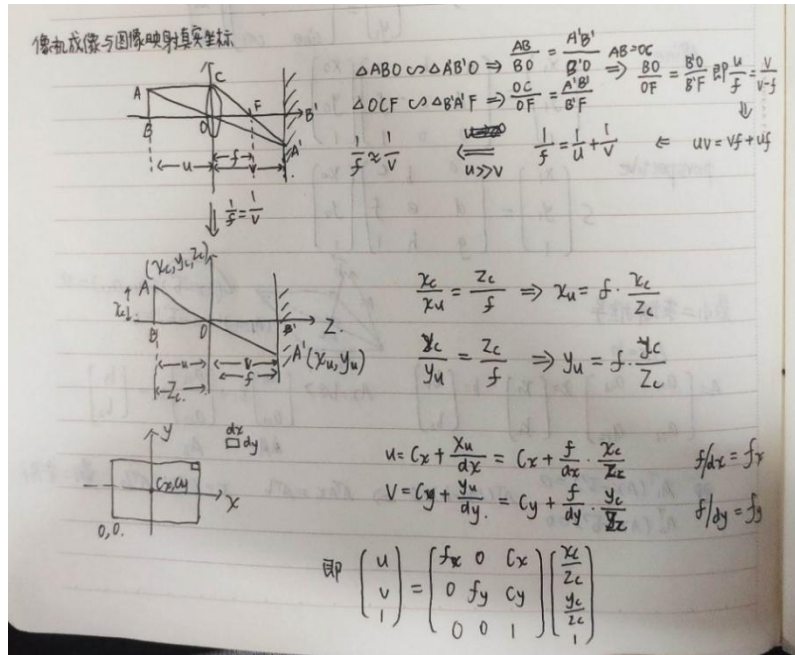 像机成像与图像映射真实坐标
△ABO ∽ △AB'O ⇒ AB/BO = A'B'/B'O AB=OC ⇒ BO/OF = B'O/B'F 即 u/f = v/(v-f)
△OCF ∽ △B'A'F ⇒ OC/OF = A'B'/B'F
⇓
1/f ≈ 1/v ⇐ u>>v 1/f = 1/u + 1/v ⇐ uv = vf + uf
A C F B' B O A' u f v
⇓ 1/f = 1/v
(xc, yc, zc)
A xc B O B' Z.
A'(xu, yu)
u v f Zc
xc/xu = Zc/f ⇒ xu = f · xc/Zc
yc/yu = Zc/f ⇒ yu = f · yc/Zc
y dx dy
Cx,Cy x
0,0.
u = Cx + xu/dx = Cx + f/dx · xc/Zx f/dx = fx
v = Cy + yu/dy. = Cy + f/dy · yc/Zx f/dy = fy
即 (u v 1) = (fx 0 Cx
0 fy Cy
0 0 1) (xc/zc yc/zc 1)